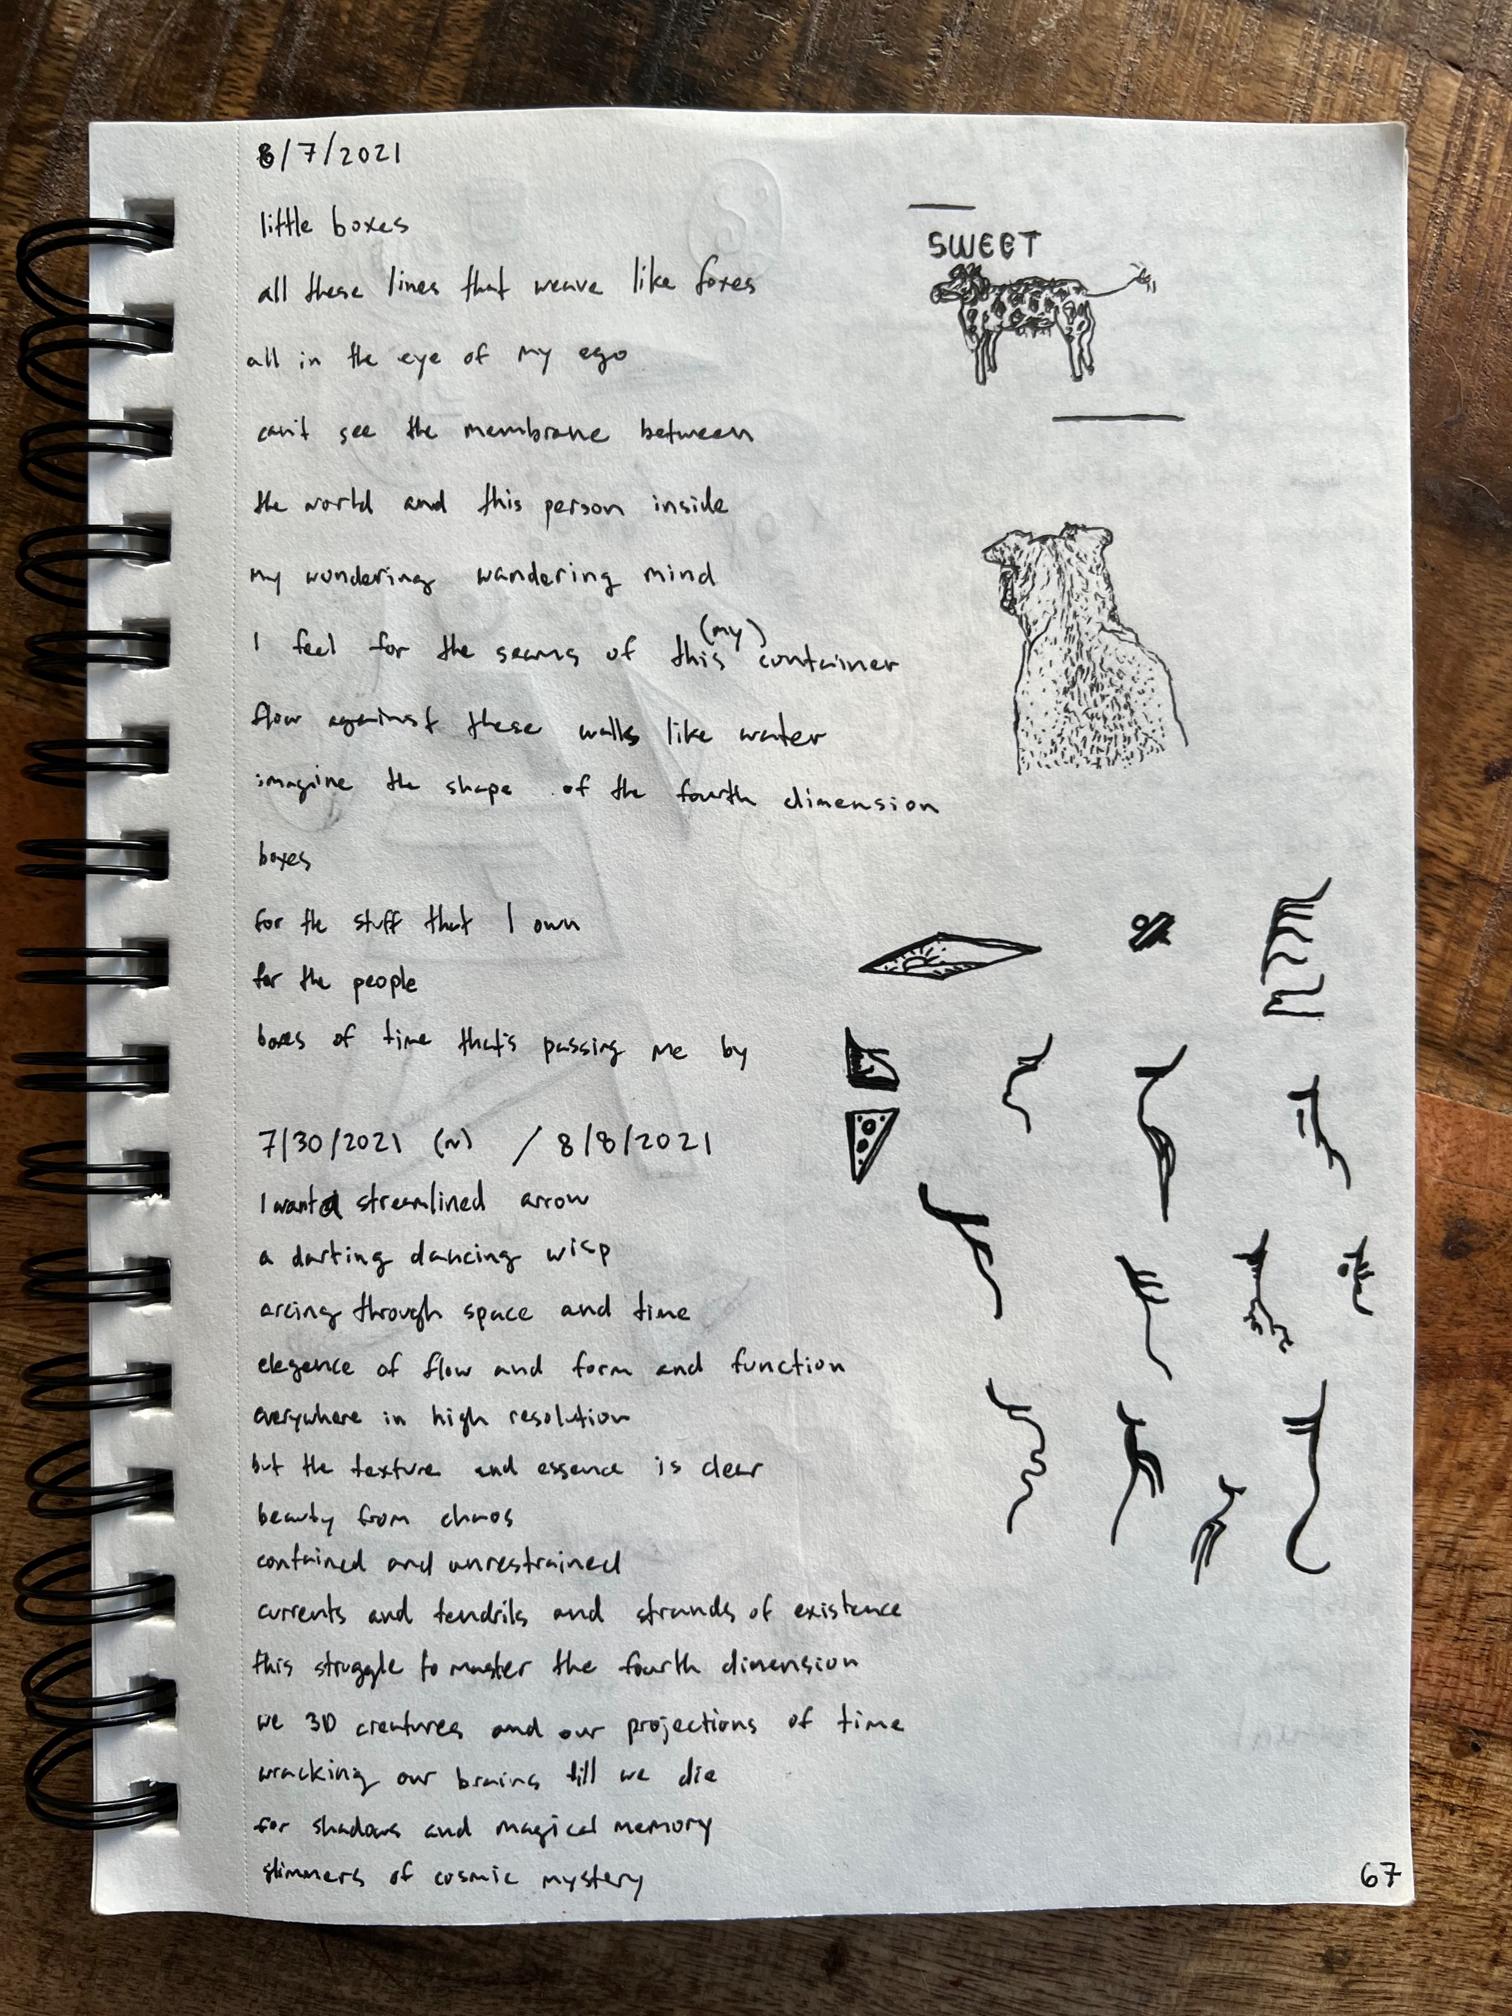 8/7/2021
little boxes
all these lines that weave like foxes
all in the eye of my ego
can't see the membrane between
the world and this person inside
my wondering wandering mind
I feel for the seams of this (my) container
flow against these walls like water
imagine the shape of the fourth dimension
boxes
for the stuff that I own
for the people
boxes of time that's passing me by
7/30/2021 (~) / 8/8/2021
I want a streamlined arrow
a darting dancing wisp
arcing through space and time
elegence of flow and form and function
everywhere in high resolution
but the texture and essence is clear
beauty from chaos
contained and unrestrained
currents and tendrils and strands of existence
this struggle to master the fourth dimension
we 3D creatures and our projections of time
wracking our brains till we die
for shadows and magical memory
glimmers of cosmic mystery
SWEET
67